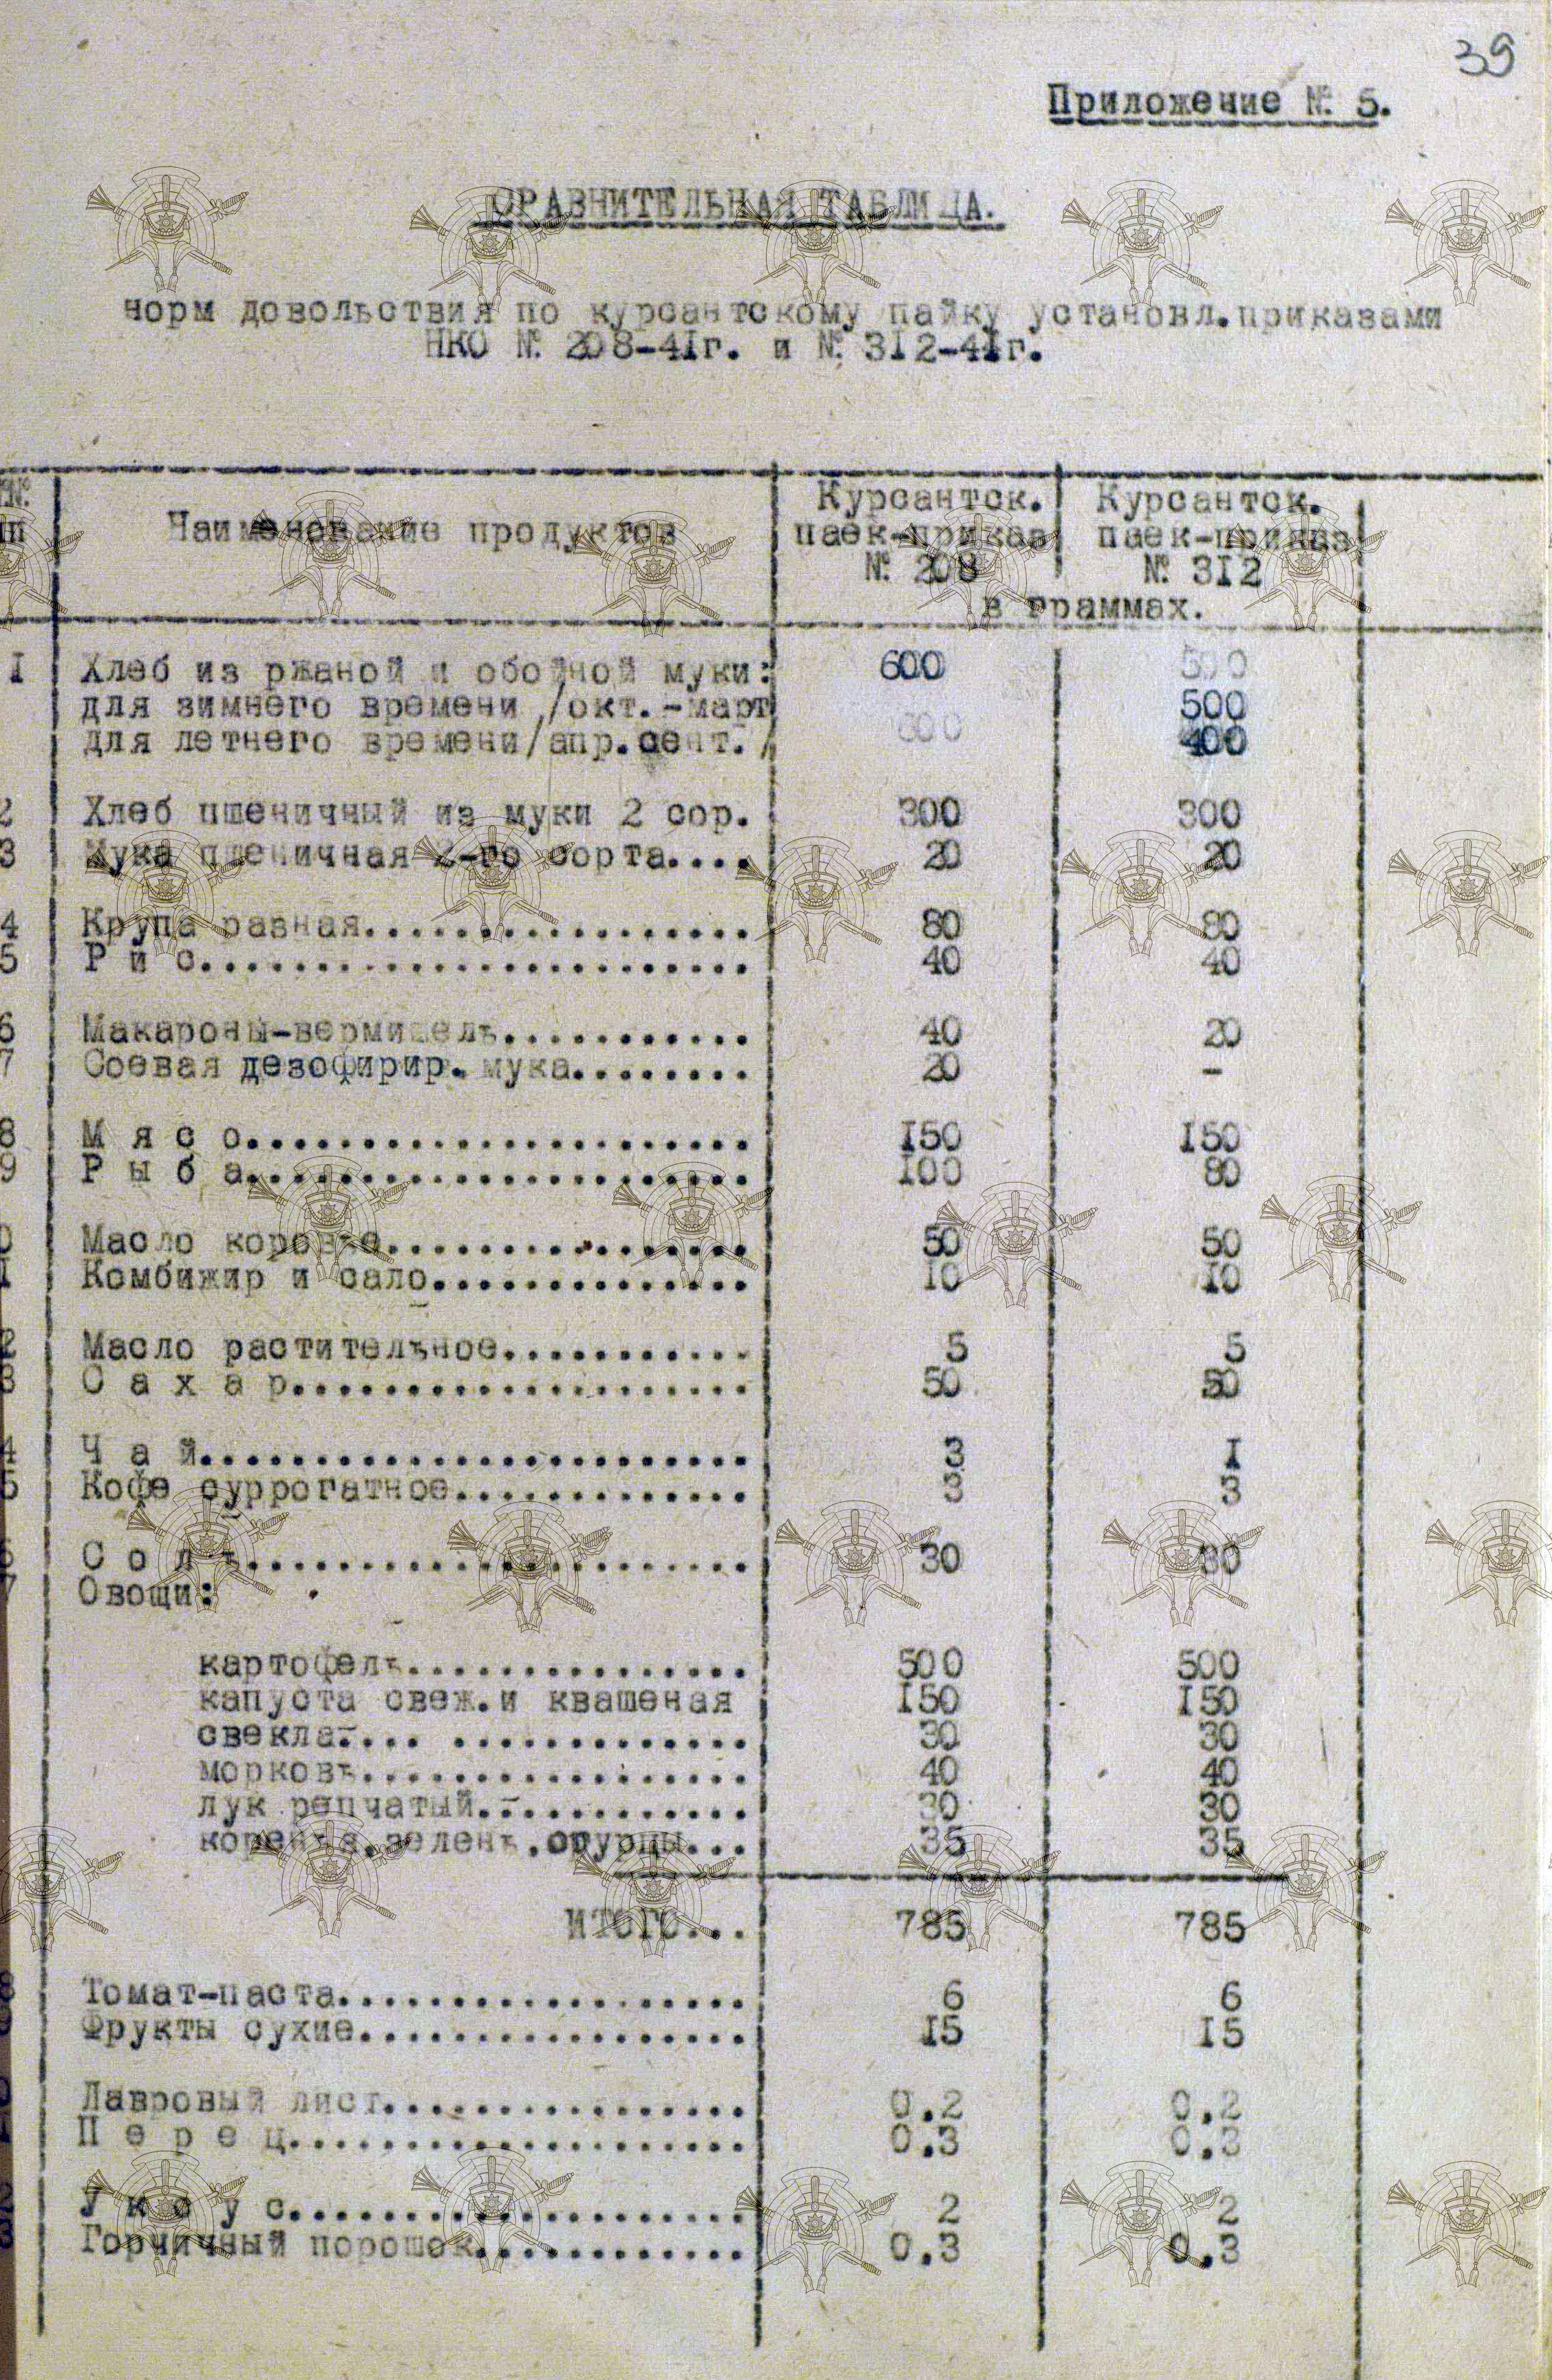 39
Приложение №. 5.
СРАВНИТЕЛЬНАЯ ТАБЛИЦА.
норм довольствия по курсантскому пайку установл.приказами
НКО №. 208-41г. и №. 312-41г.
№.
пп
Наименование продуктов
Курсантск. паек-приказ №. 208
Курсантск. паек-приказ №. 312
в граммах.
1 Хлеб из ржаной и обойной муки: 600 500
для зимнего времени /окт.-март 500
для летнего времени/апр.сент./ 400
2 Хлеб пшеничный из муки 2 сор. 300 300
3 Мука пшеничная 2-го сорта.... 20 20
4 Крупа разная.................. 80 80
5 Р и с......................... 40 40
6 Макароны-вермишель............ 40 20
7 Соевая дезофирир. мука........ 20 -
8 М я с о....................... 150 150
9 Р ы б а....................... 100 80
0 Масло коровье................ 50 50
1 Комбижир и сало............... 10 10
2 Масло растительное........... 5 5
3 С а х а р..................... 50 50
4 Ч а й......................... 3 1
5 Кофе суррогатное.............. 3 3
6 С о л ь....................... 30 30
7 Овощи:
картофель................ 500 500
капуста свеж.и квашеная 150 150
свекла.... ............. 30 30
морковь.................. 40 40
лук репчатый............. 30 30
коренья,зелень,огурцы... 35 35
ИТОГО... 785 785
8 Томат-паста.................. 6 6
Фрукты сухие................. 15 15
Лавровый лист................ 0.2 0.2
П е р е ц.................... 0.3 0.3
2 У к с у с.................... 2 2
3 Горчичный порошок............ 0.3 0.3